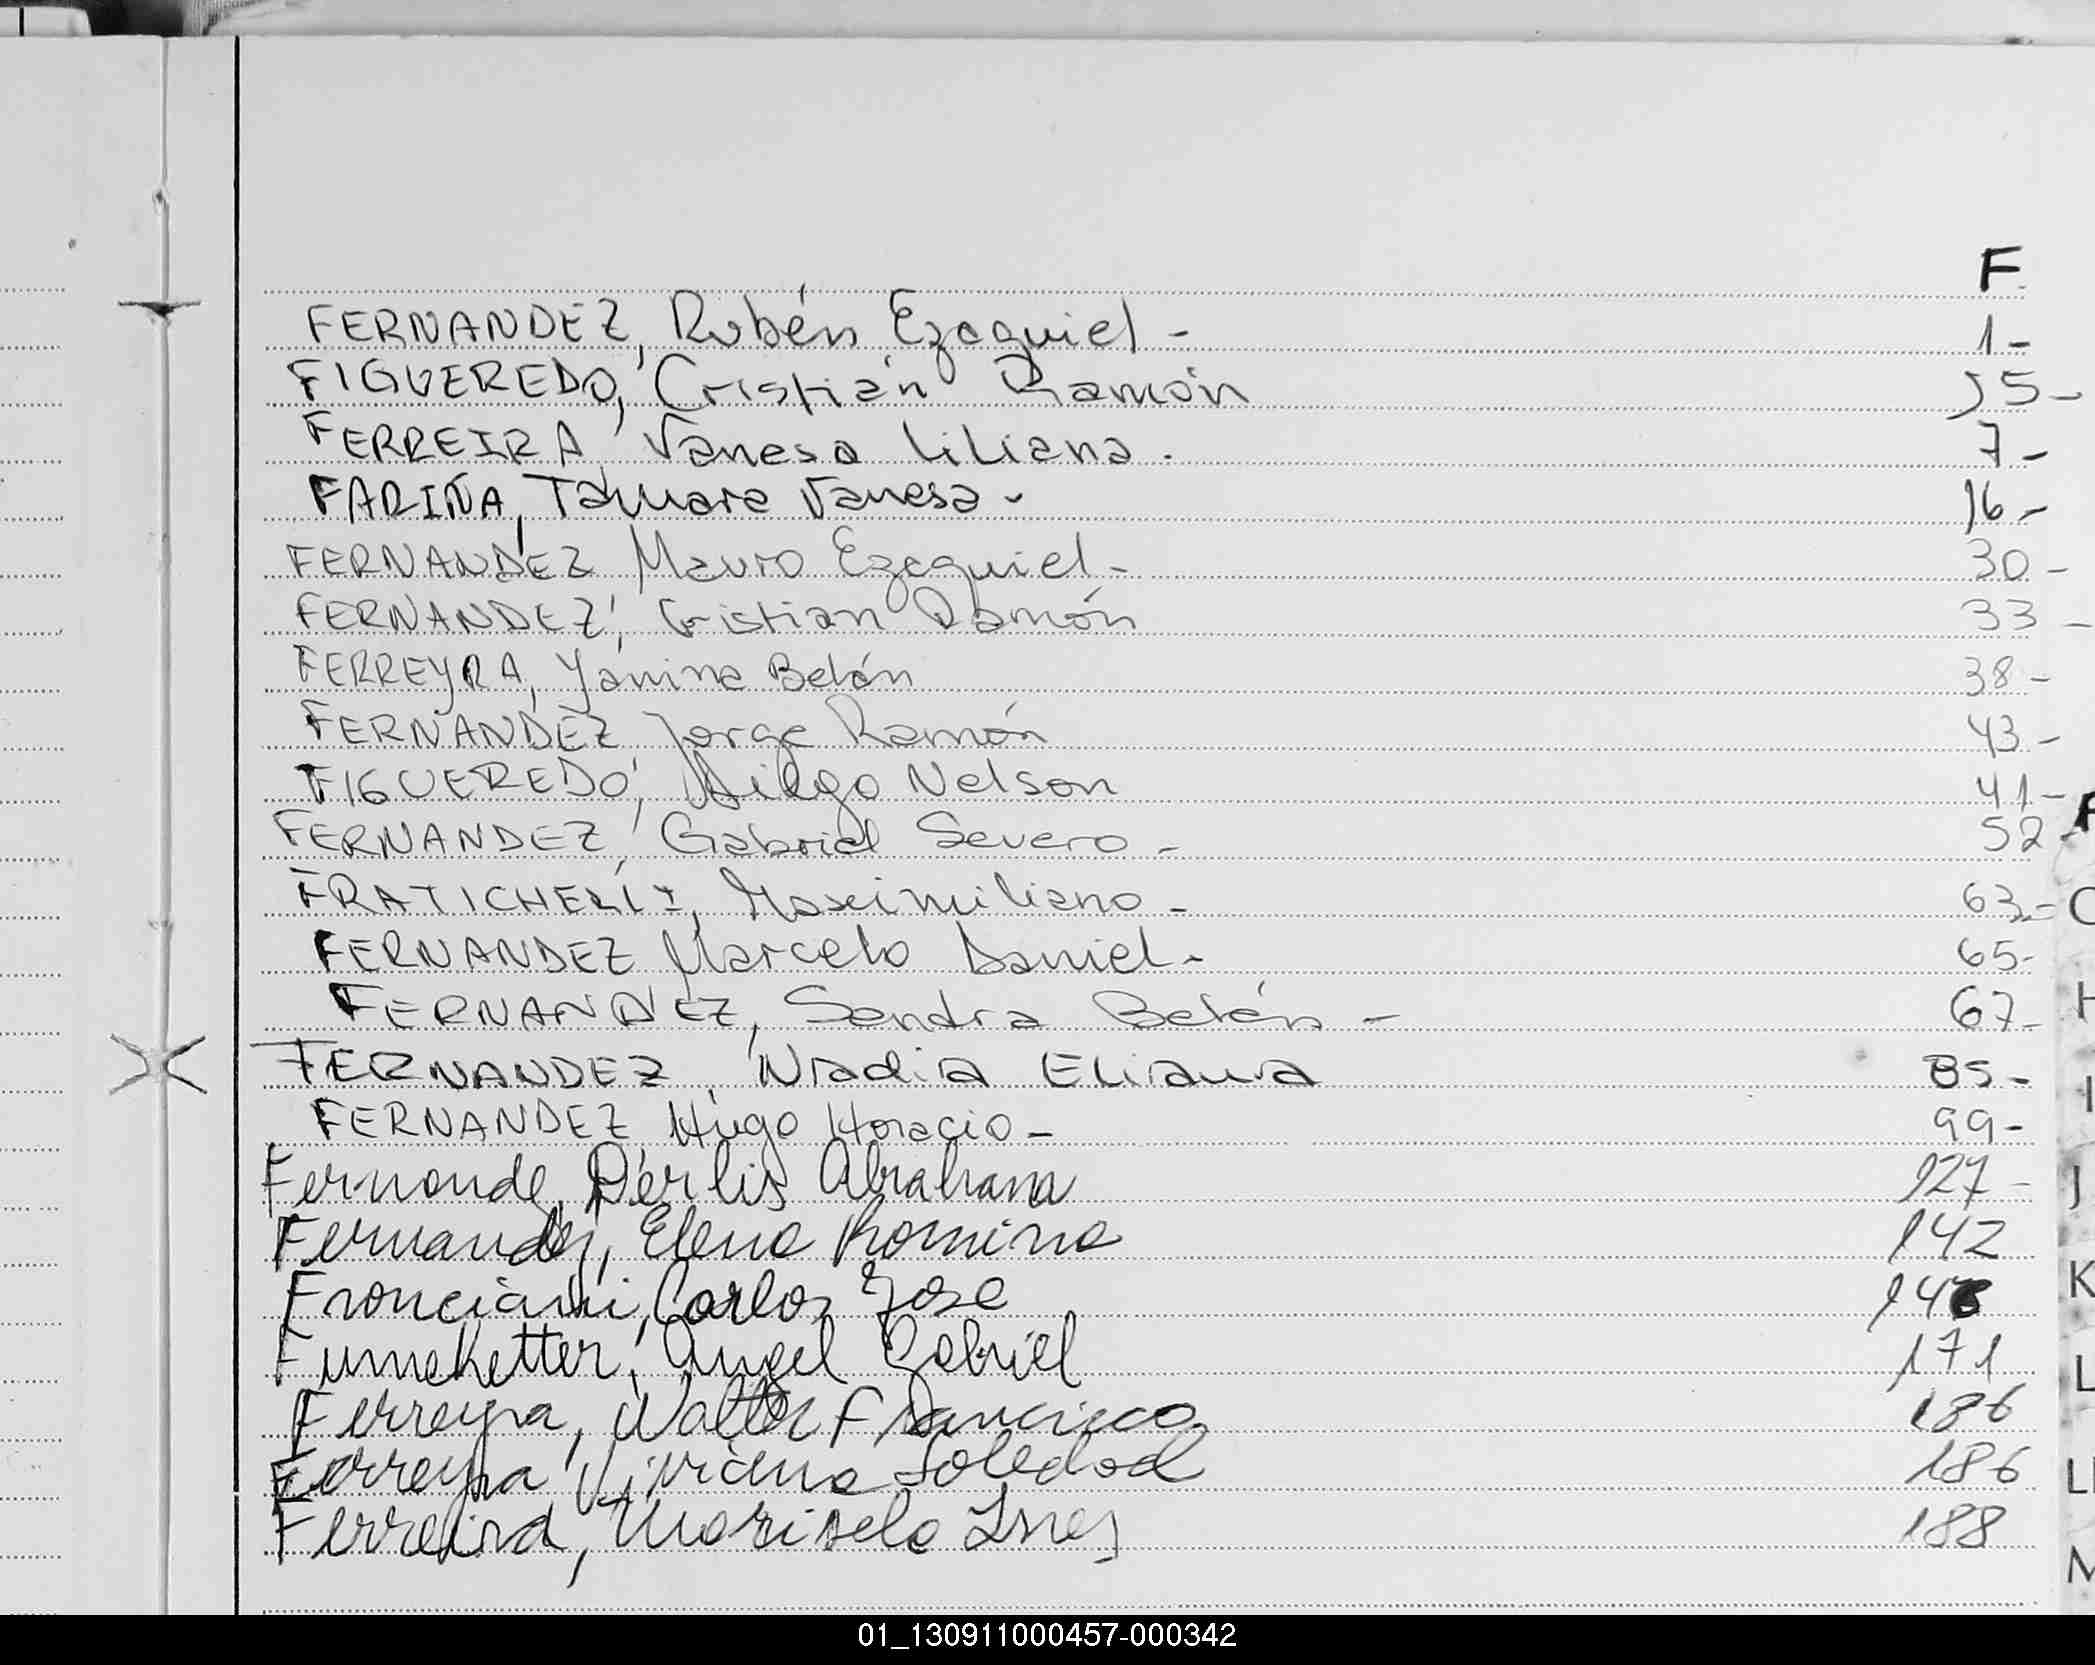 F
FERNANDEZ, Rubén Ezequiel - 1-
FIGUEREDO, Cristian Ramón 15-
FERREIRA, Vanesa Liliana. 7-
FARIÑA, Tamara Vanesa - 16-
FERNANDEZ Mauro Ezequiel - 30-
FERNANDEZ, Cristian Ramón 33-
FERREYRA, Yanina Belén 38-
FERNANDEZ Jorge Ramón 43-
FIGUEREDO, Diego Nelson 41-
FERNANDEZ, Gabriel Severo - 52-
FRATICHELLI, Maximiliano - 63-
FERNANDEZ Marcelo Daniel - 65-
FERNANDEZ, Sandra Belén - 67-
FERNANDEZ, Nadia Eliana 85-
FERNANDEZ Hugo Horacio - 99-
Fernandez, Derlis Abraham 127-
Fernandez, Elena Romina 142
Franciani, Carlos Jose
Fumeketter, Angel Gabriel 171
Ferreyra, Walter Francisco 186
Ferreyra, Viviana Soledad 186
Ferreira, Marisela Ines 188
J
K
L
01_130911000457-000342